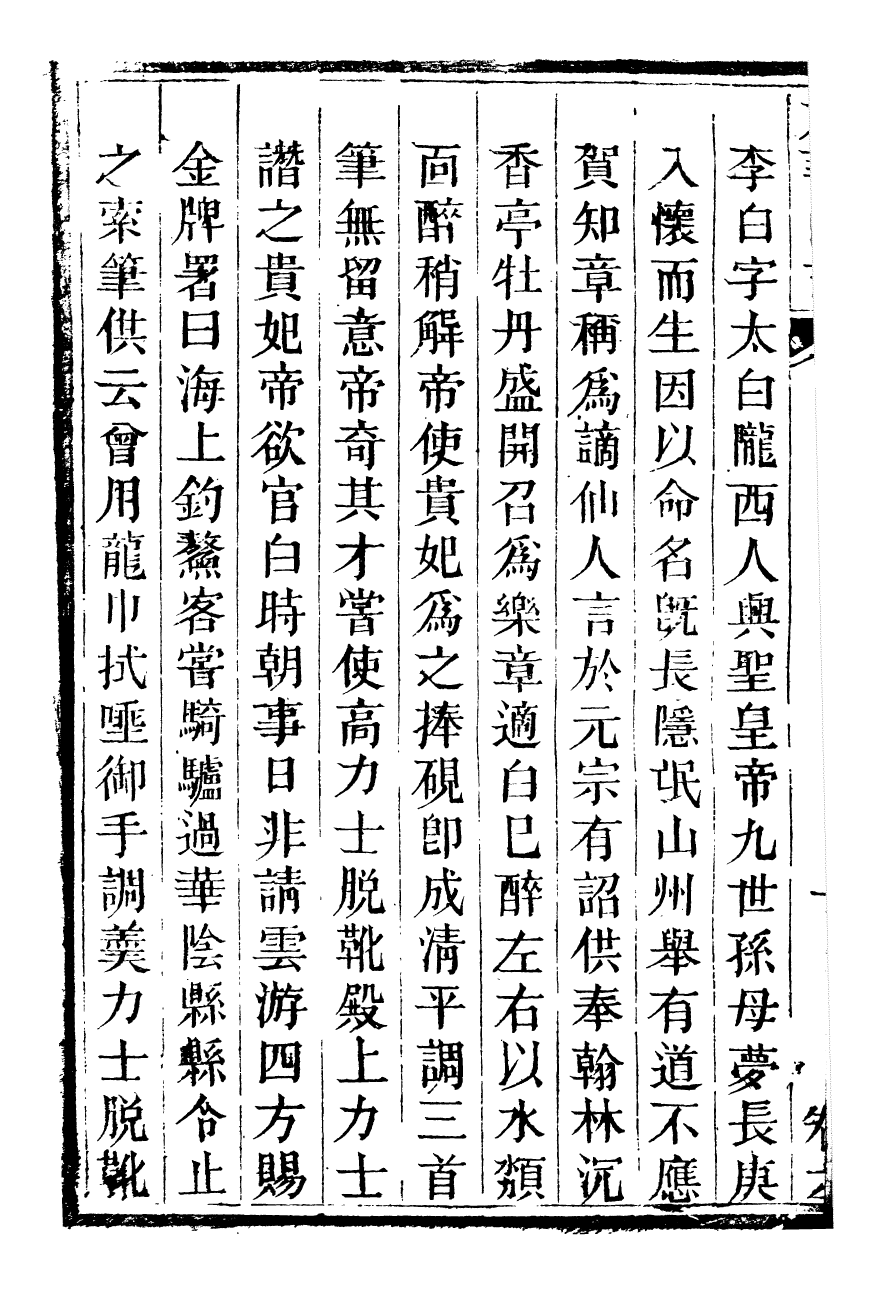 李白字太白隴西人興聖皇帝九世孫母夢長庚
入懷而生因以命名旣長隱岷山州舉有道不應
賀知章稱爲謫仙人言於元宗有詔供奉翰林沉
香亭牡丹盛開召爲樂章適白巳醉左右以水頮
面醉稍解帝使貴妃爲之捧硯卽成清平調三首
筆無留意帝奇其才嘗使高力士脫靴殿上力士
譖之貴妃帝欲官白時朝事日非請雲游四方賜
金牌署曰海上釣鰲客嘗騎驢過華陰縣縣令止
之索筆供云曾用龍巾拭唾御手調羹力士脫靴